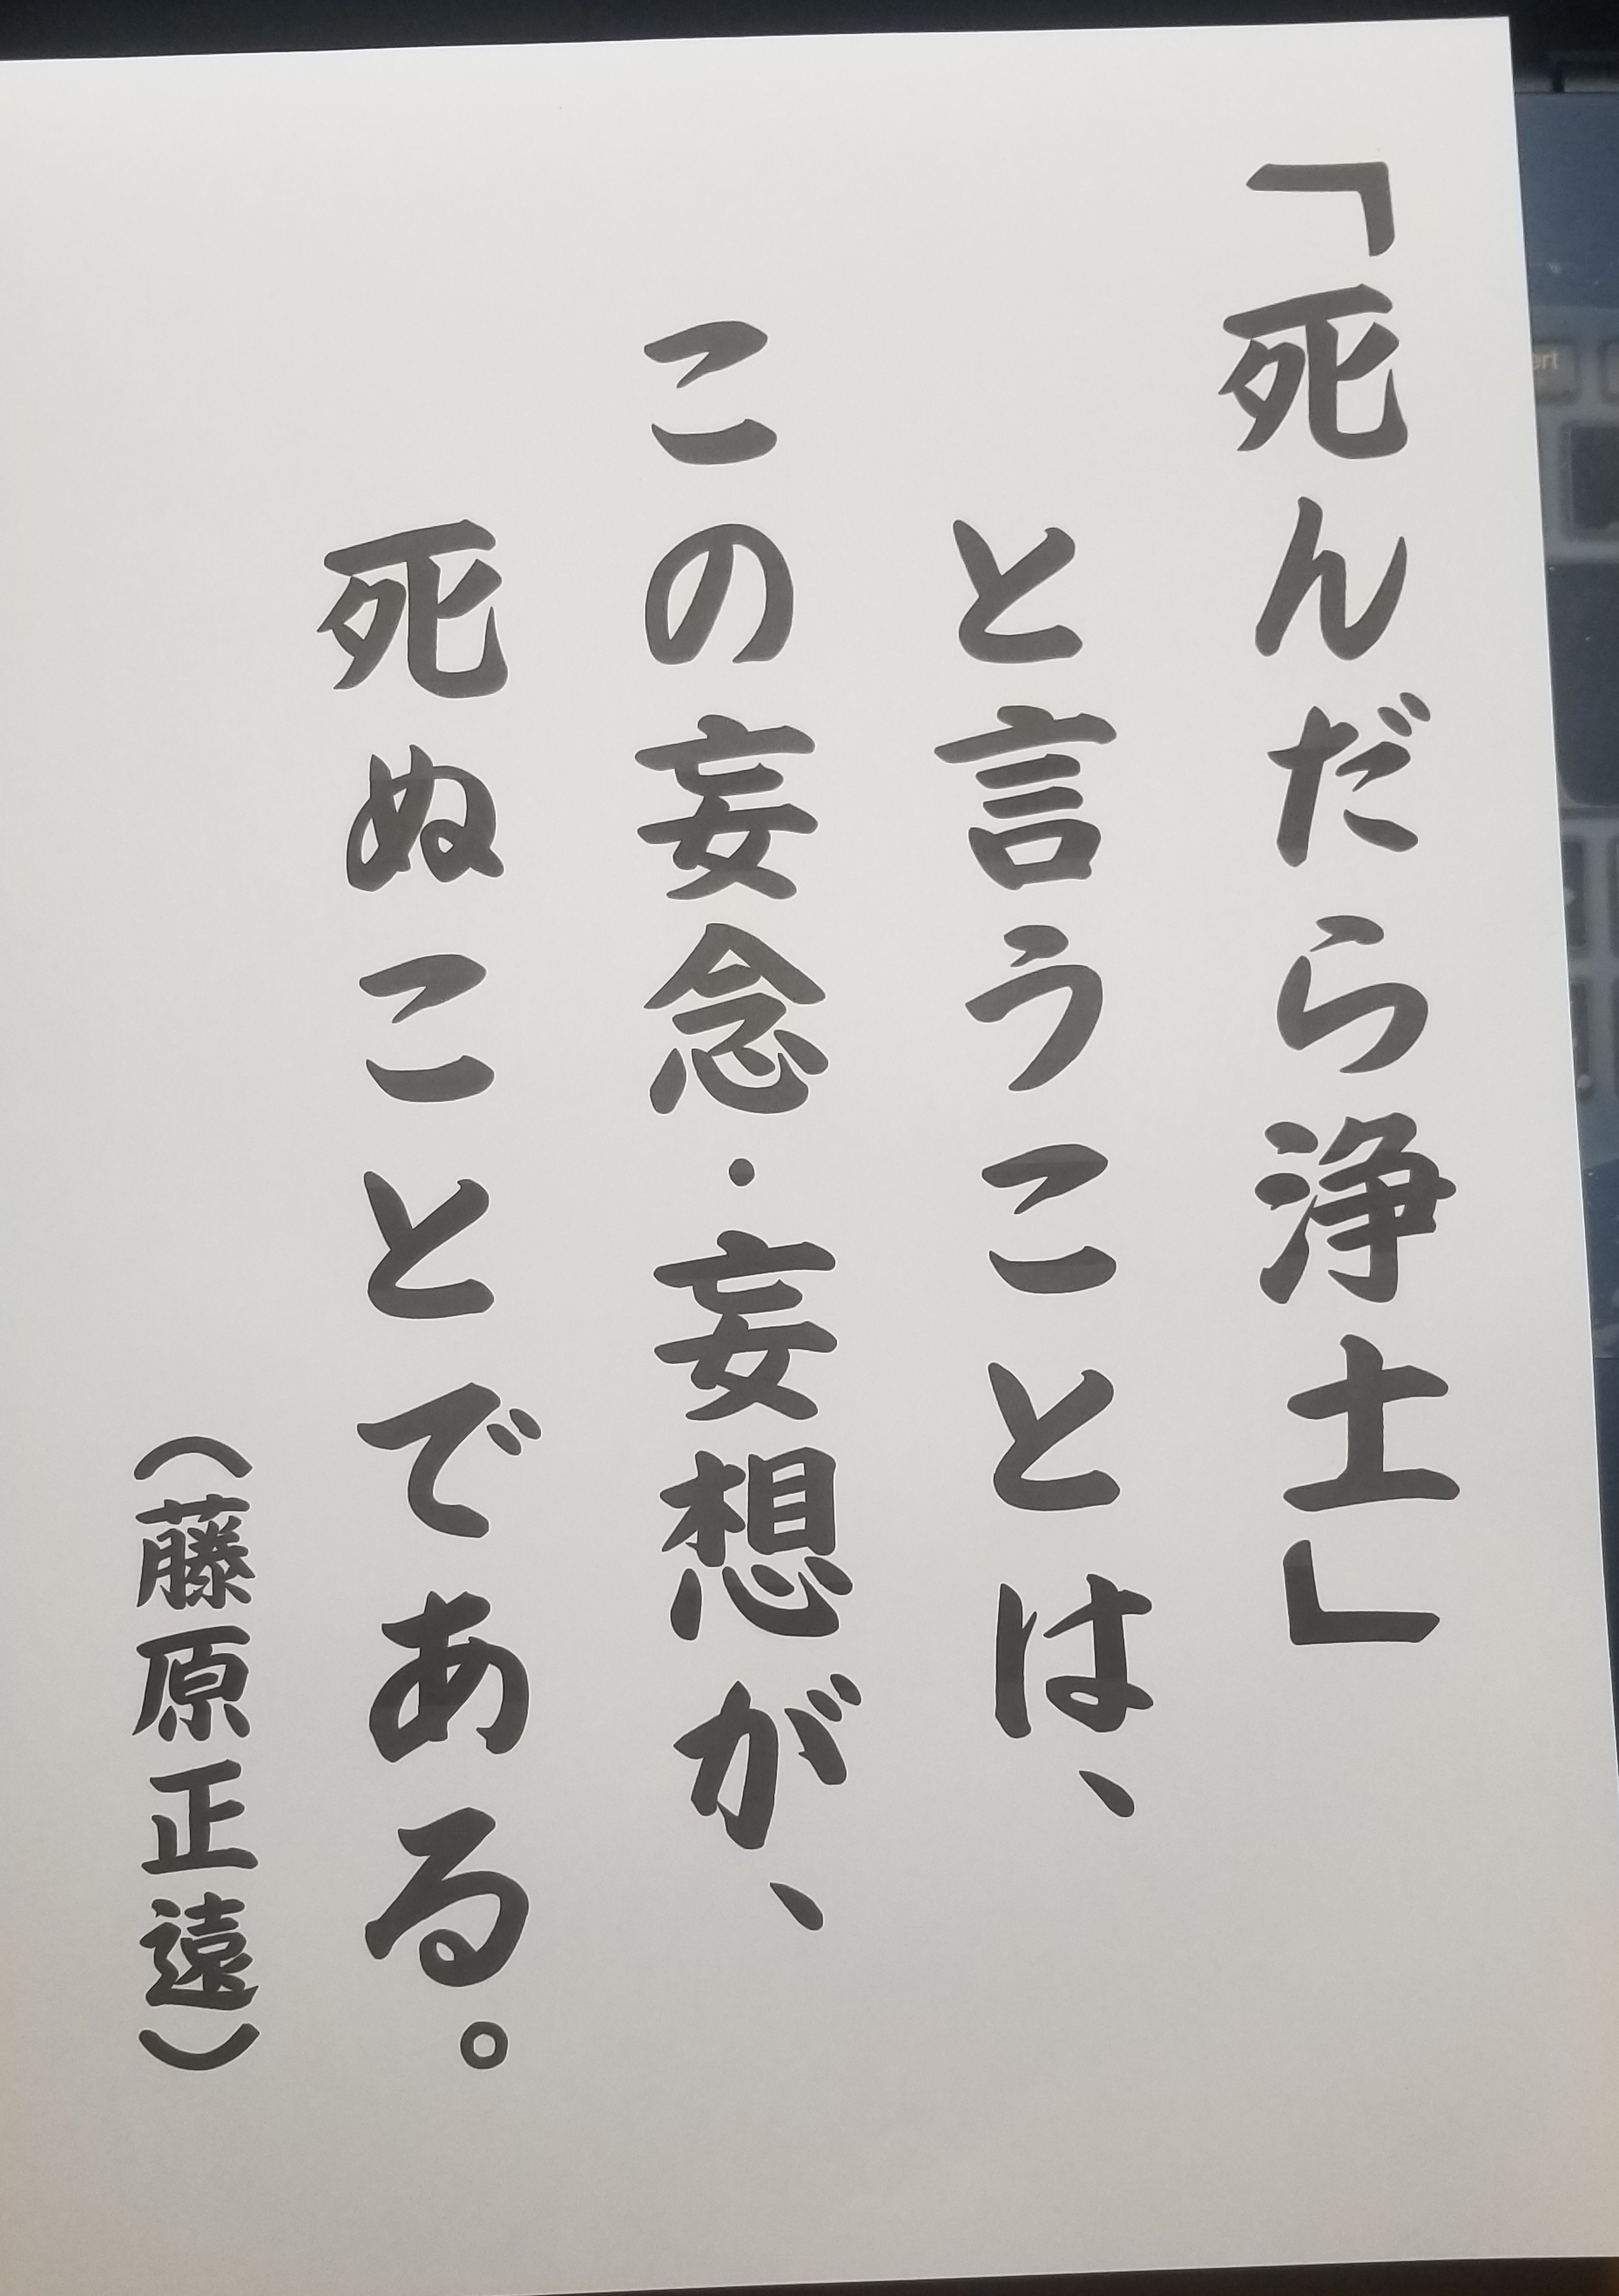 「死んだら浄土」
と言うことは、
この妄念・妄想が、
死ぬことである。
（藤原正遠）
ert